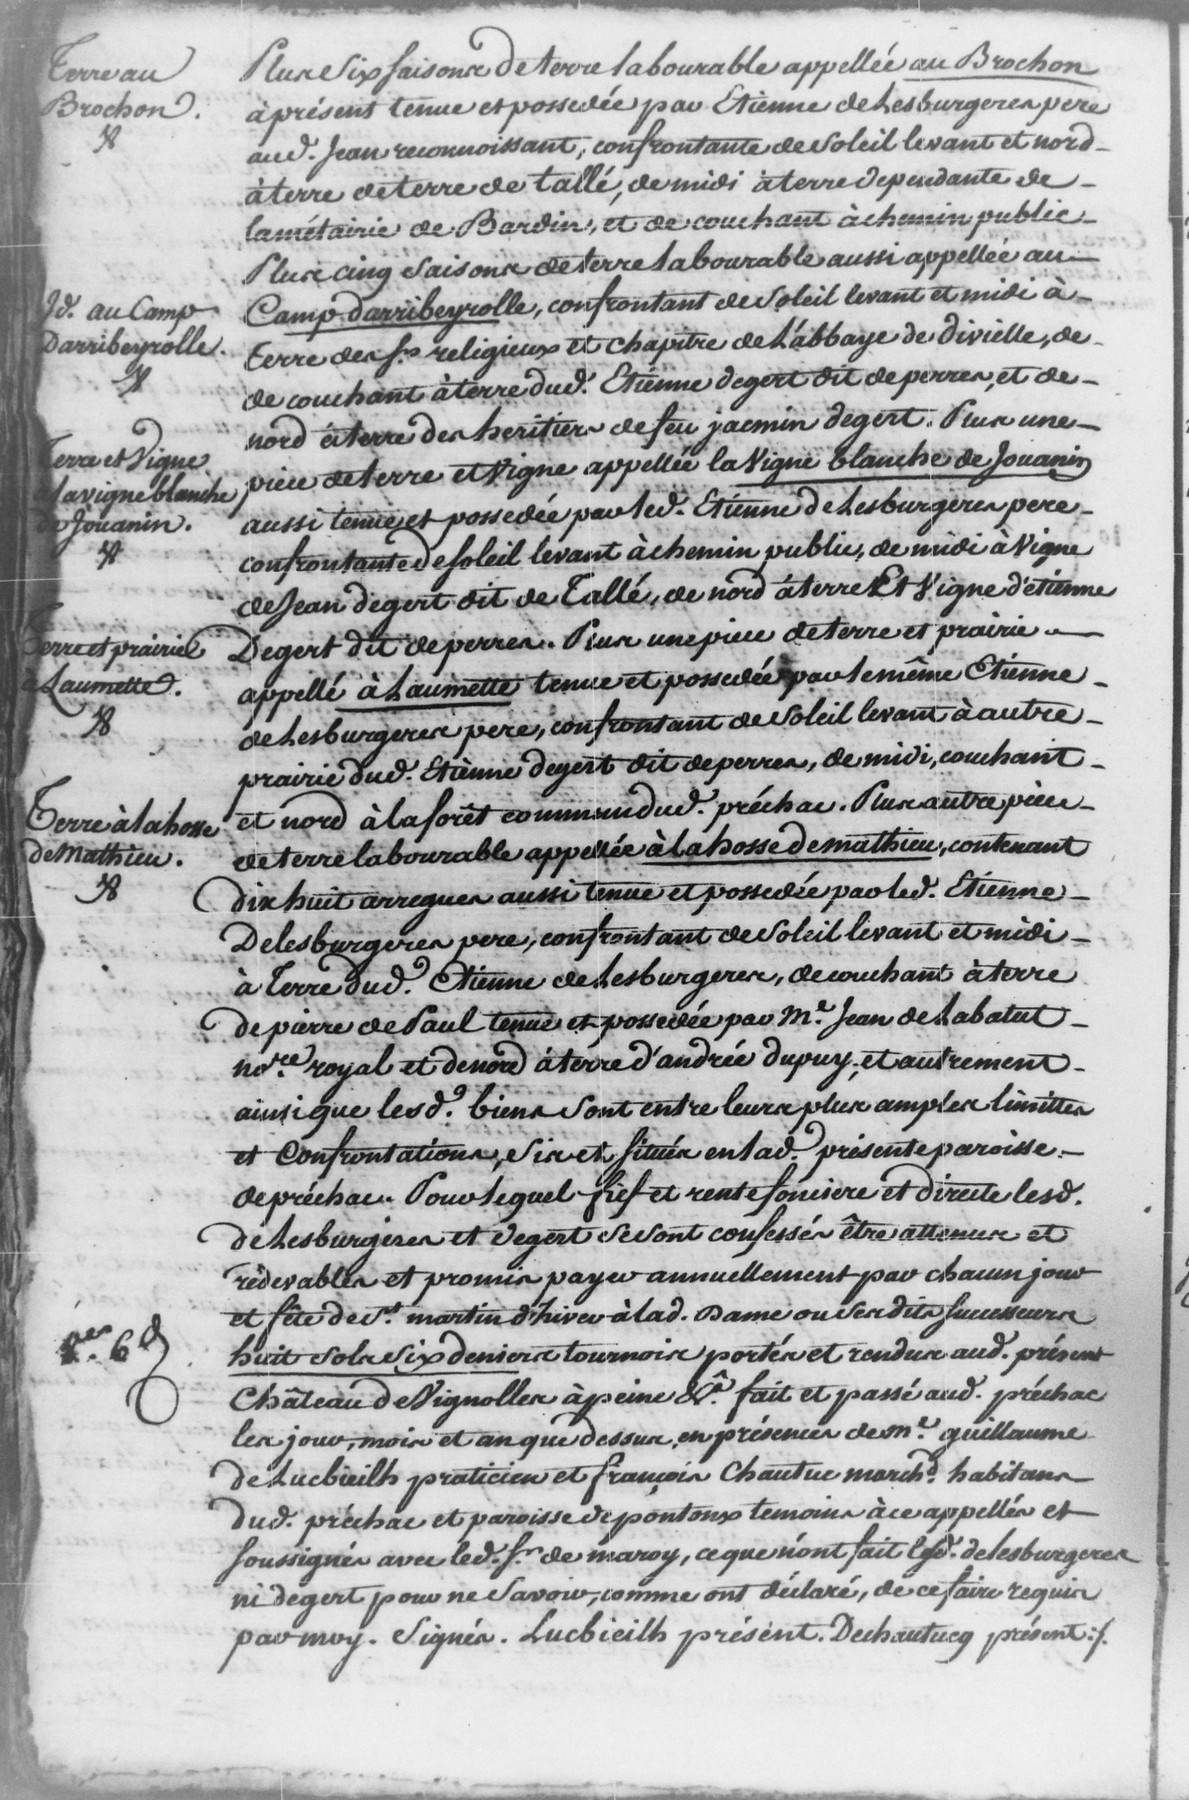 Terre au
Brochon.
Plus Six faisons de terre labourable appellée au Brochon
à présent tenue et possedée par Etienne de Lesburgeres pere
aud. Jean reconnoissant, confrontante de Soleil levant et nord
à terre de terre de tallé, de midi à terre dependante de
la métairie de Bardin, et de couchant à chemin public
Plus cinq Saisons de terre labourable aussi appellée au
Id. au Camp
Darribeyrolle.
Camp darribeyrolle, confrontant de Soleil levant et midi à
terre des Srs religieux et chapitre de L'abbaye de divielle, de
de couchant à terre dud. Etienne degert dit de perres, et de
nord à terre des heritiers de feu jacmin degert. Plus une
Terre et Vigne
à la vigne blanche
de Jouanin.
piece de terre et Vigne appellée la Vigne blanche de Jouanin
aussi tenue et possedée par led. Etienne de Lesburgeres pere
confrontante de soleil levant à chemin public, de midi à Vigne
de Jean degert dit de Tallé, de nord à terre Et Vigne d'etienne
Terre et prairie
à Laumette.
Degert dit de perres. Plus une piece de terre et prairie
appellé à Laumette tenue et possedée par le même Etienne
de Lesburgeres pere, confrontant de Soleil levant à autre
prairie dud. Etienne degert dit de perres, de midi, couchant
Terre à la hosse
de Mathieu.
et nord à la forêt commun dud. préchac. Plus autre piece
de terre labourable appellée à la hosse de mathieu, contenant
dix huit arregues aussi tenue et possedée par led. Etienne
Delesburgeres pere, confrontant de Soleil levant et midi
à Terre dud. Etienne de Lesburgeres, de couchant à terre
de pierre de Paul tenue et possedée par Me. Jean de Labatut
nore. royal et de nord à terre d'andrée dupuy, et autrement
ainsi que lesd. biens sont entre leurs plus amples limittes
et Confrontations, sis et situés en lad. présente paroisse
de préchac. Pour lequel fief et rente fonciere et directe lesd.
de Lesburgeres et degert se sont confessés être attenus et
rédevables et promis payer annuellement par chacun jour
et fête de St. martin d'hiver à lad. Dame ou ses dits successeurs
huit sols Six deniers tournois portés et rendus aud. présent
Château de Vignolles à peine &a. fait et passé aud. préchac
les jour, mois et an que dessus, en présence de me. guillaume
de Lucbieilh praticien et françois Chautuc marchd. habitans
dud. préchac et paroisse de pontonx temoins à ce appellés et
soussignés avec led. Sr. de maroy, ce que n'ont fait lesd. de lesburgeres
ni degert pour ne Savoir, comme ont déclaré, de ce faire requis
par moy. Signés. Lucbieilh présent. Dechautucq présent./.